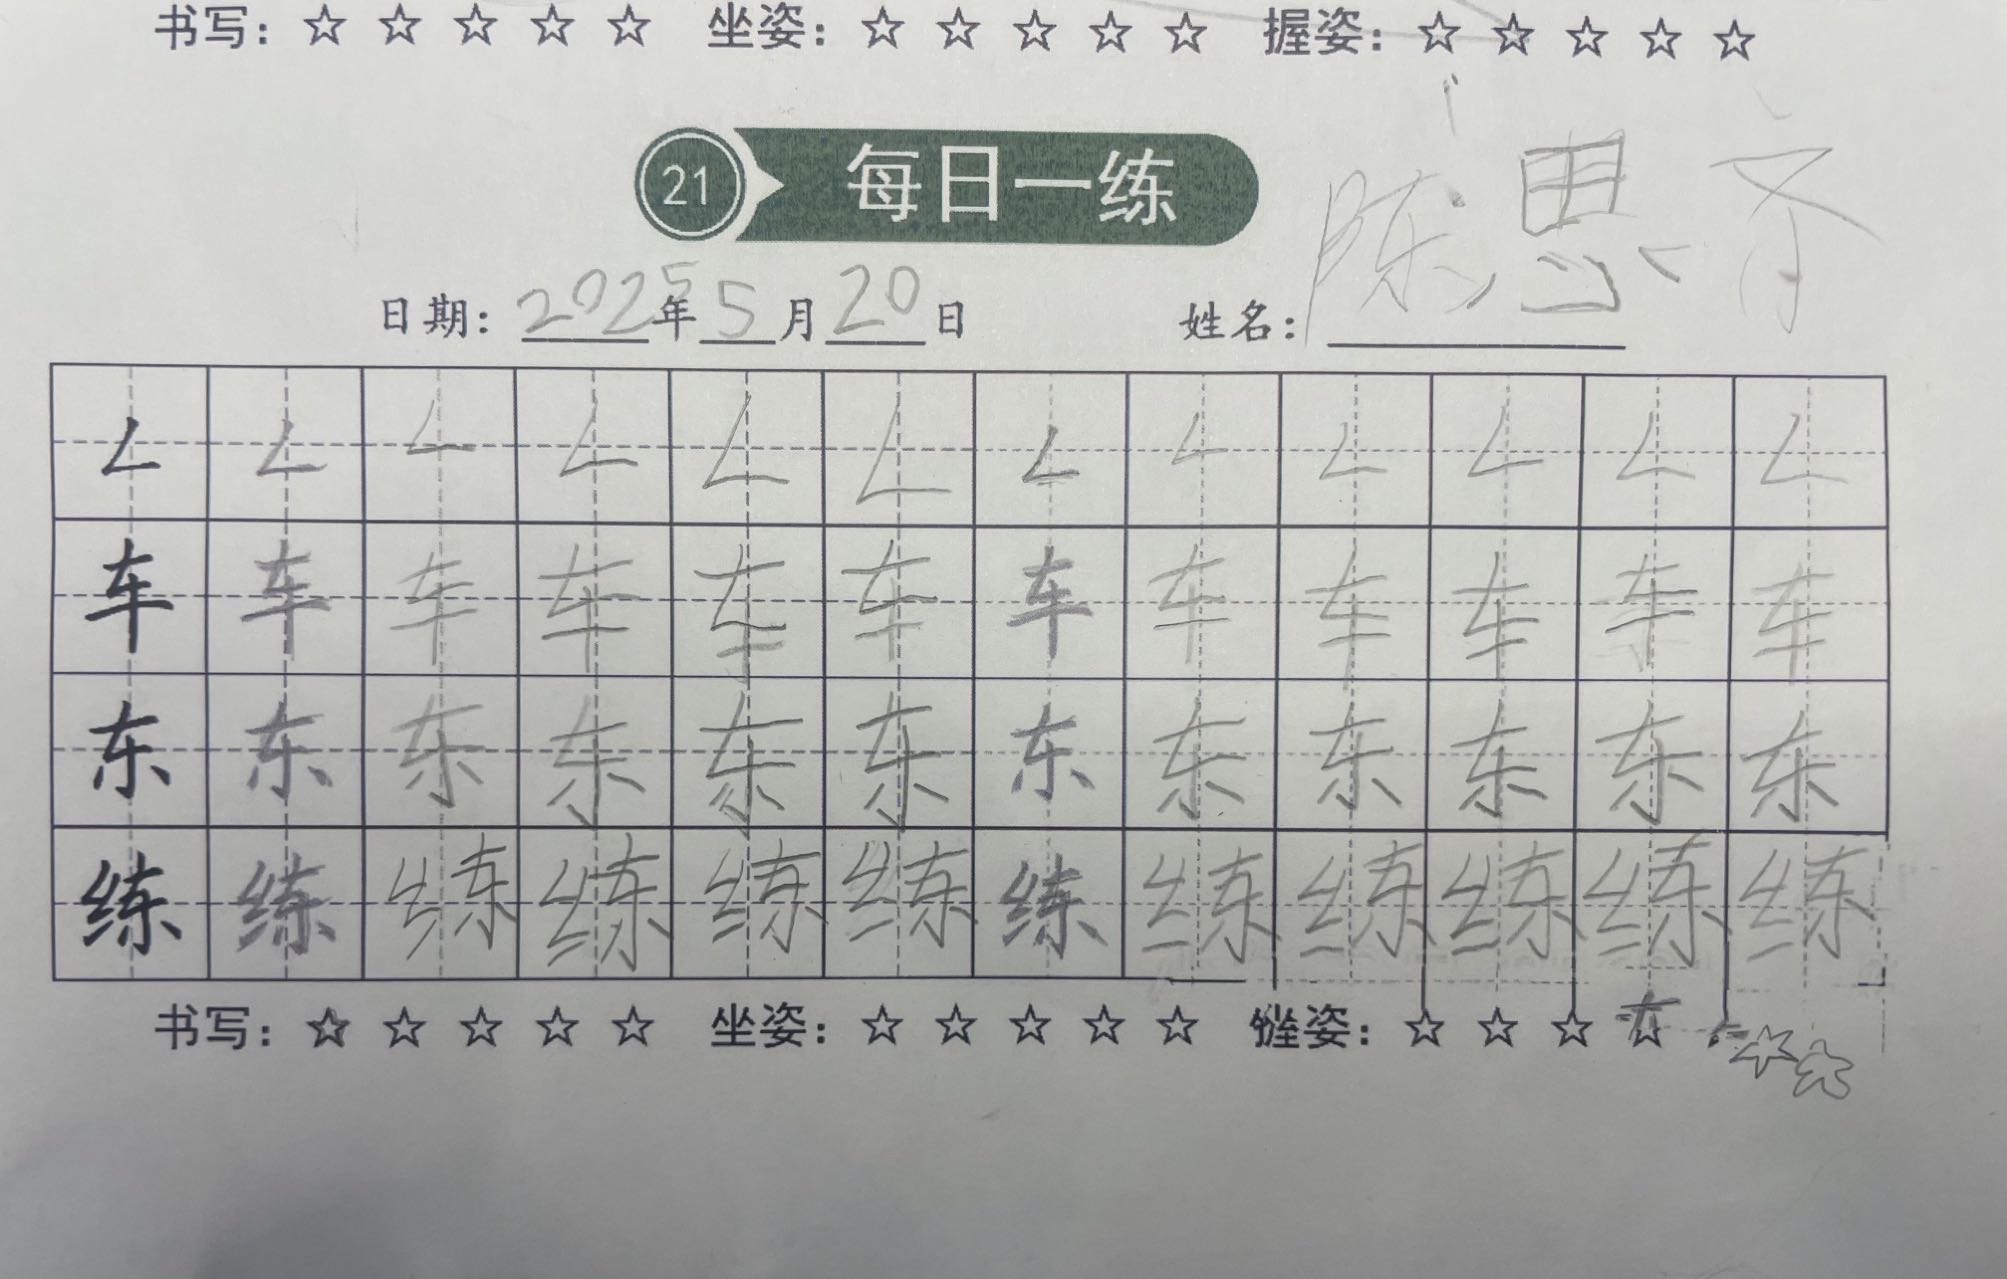 书写：☆ ☆ ☆ ☆ ☆ 坐姿：☆ ☆ ☆ ☆ ☆ 握姿：☆ ☆ ☆ ☆ ☆
21 每日一练
日期：2025年5月20日 姓名：陈思齐
𠃋 𠃋 𠃋 𠃋 𠃋 𠃋 𠃋 𠃋 𠃋 𠃋 𠃋 𠃋
车 车 车 车 车 车 车 车 车 车 车 车
东 东 东 东 东 东 东 东 东 东 东 东
练 练 练 练 练 练 练 练 练 练 练 练
书写：☆ ☆ ☆ ☆ ☆ 坐姿：☆ ☆ ☆ ☆ ☆ 握姿：☆ ☆ ☆ ☆ ☆ ☆